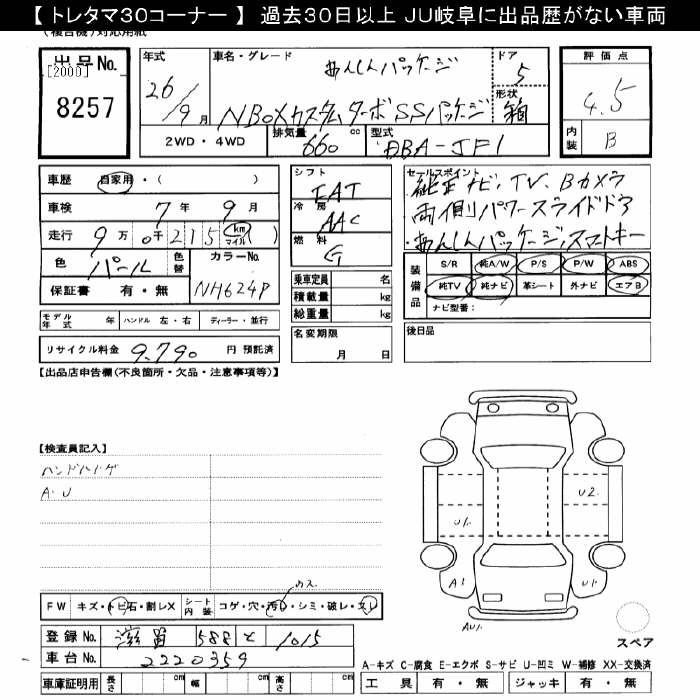 【 トレタマ30コーナー 】 過去30日以上 JU岐阜に出品歴がない車両
(複合機)対応用紙
出品No.
[2000]
8257
年式
26/9月
車名・グレード
あんしんパッケージ
NBOXカスタム ターボ SSパッケージ
ドア
5
形状
箱
評価点
4.5
内装
B
2WD ・ 4WD
排気量
660 cc
型式
DBA-JF1
車歴 自家用・( )
車検 7年 9月
走行 9万 0千215 (km マイル)
色 パール 色替
カラーNo.
NH624P
保証書 有・無
シフト
IAT
冷房
AAC
燃料
G
乗車定員 名
積載量 kg
総重量 kg
セールスポイント
純正ナビ、TV、Bカメラ
両側パワースライドドア
あんしんパッケージ,スマートキー
装備品
S/R 純A/W P/S P/W ABS
純TV 純ナビ 革シート 外ナビ エアB
ナビ型番:
モデル年式 年 ハンドル 左・右 ディーラー・並行
リサイクル料金 9,790 円 預託済
名変期限
月 日
後日品
【出品店申告欄(不良箇所・欠品・注意事項等)】
【検査員記入】
ハンドルハゲ
A.U
U2
U1
A1
U1
AU1
FW キズ・トビ石・割レX シート内装 コゲ・穴・汚レ・シミ・破レ・スレ
登録No. 滋賀 588 と 1015
車台No. 2220359
スペア
A-キズ C-腐食 E-エクボ S-サビ U-凹ミ W-補修 XX-交換済
車庫証明用 長さ cm 幅 cm 高さ cm
工具 有・無 ジャッキ 有・無